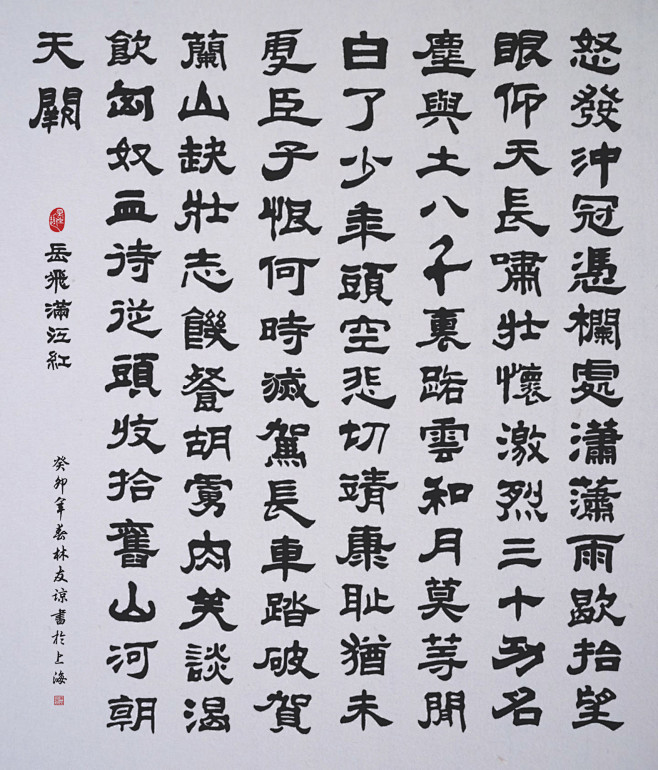 怒發沖冠憑欄處瀟蕭雨歇抬望
眼仰天長嘯壯懷激烈三十功名
塵與土八千裏路雲和月莫等閒
白了少年頭空悲切靖康恥猶未
雪臣子恨何時滅駕長車踏破賀
蘭山缺壯志饑餐胡虜肉笑談渴
飲匈奴血待從頭收拾舊山河朝
天闕
岳飛滿江紅
癸卯年春林友諒書於上海